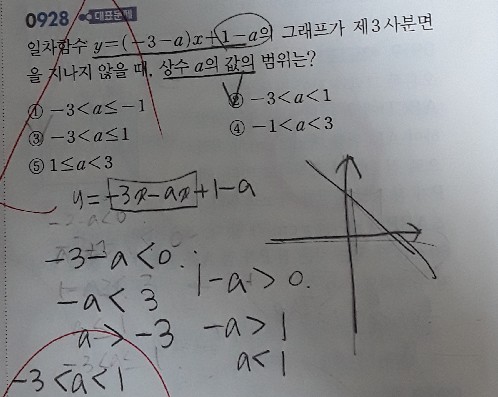 0928 대표문제
일차함수 y=(-3-a)x+1-a의 그래프가 제3사분면
을 지나지 않을 때, 상수 a의 값의 범위는?
① -3<a≤-1 ② -3<a<1
③ -3<a≤1 ④ -1<a<3
⑤ 1≤a<3
y=-3x-ax+1-a
-3-a<0
1-a>0.
-a<3
a>-3 -a>1
a<1
-3<a<1